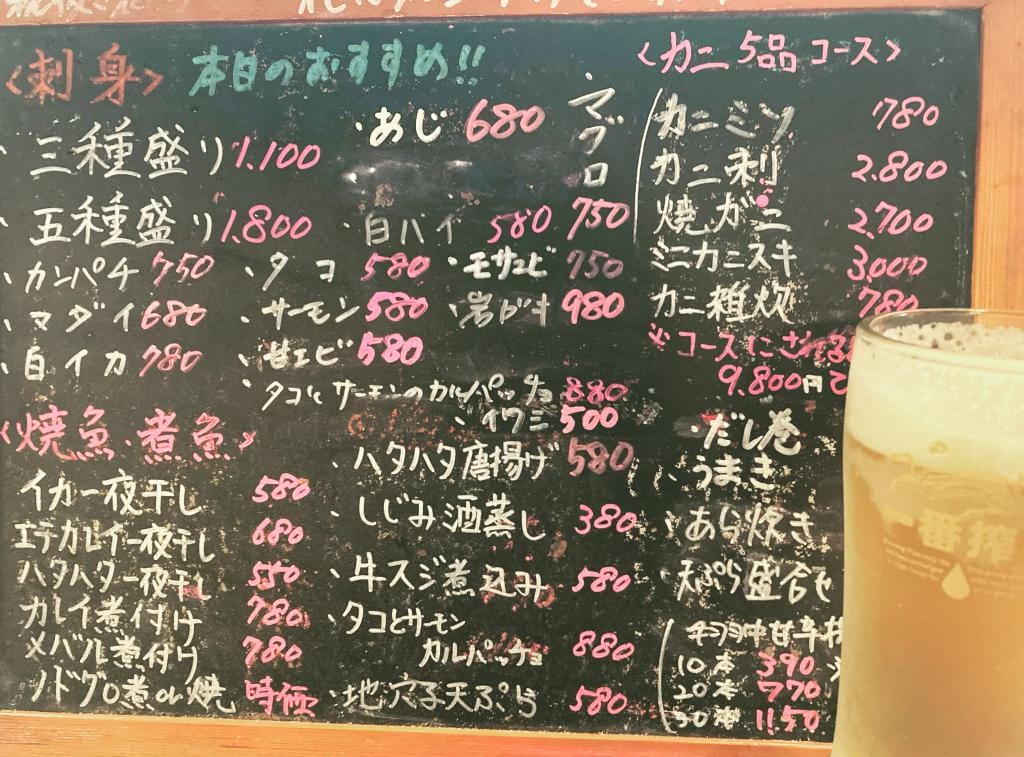 <刺身> 本日のおすすめ!!
三種盛り 1.100
五種盛り 1.800
・カンパチ 750
・マダイ 680
・白イカ 780
・あじ 680
・マグロ 750
・白バイ 580
・タコ 580
・モサエビ 750
・サーモン 580
・岩ガキ 980
・甘エビ 580
・タコとサーモンのカルパッチョ 880
・イワシ 500
<焼魚・煮魚>
イカ一夜干し 580
エテカレイ一夜干し 680
ハタハタ一夜干し 550
カレイ煮付け 780
メバル煮付け 780
ノドグロ煮or焼 時価
・ハタハタ唐揚げ 580
・しじみ酒蒸し 380
・牛スジ煮込み 580
・タコとサーモン
カルパッチョ 880
・地穴子天ぷら 580
<カニ5品コース>
カニミソ 780
カニ刺 2.800
焼ガニ 2.700
ミニカニスキ 3.000
カニ雑炊 780
※コースにされる
9.800円で
・だし巻
・うまき
・あら炊き
・天ぷら盛合せ
10本 390
20本 770
30本 1150
一番搾